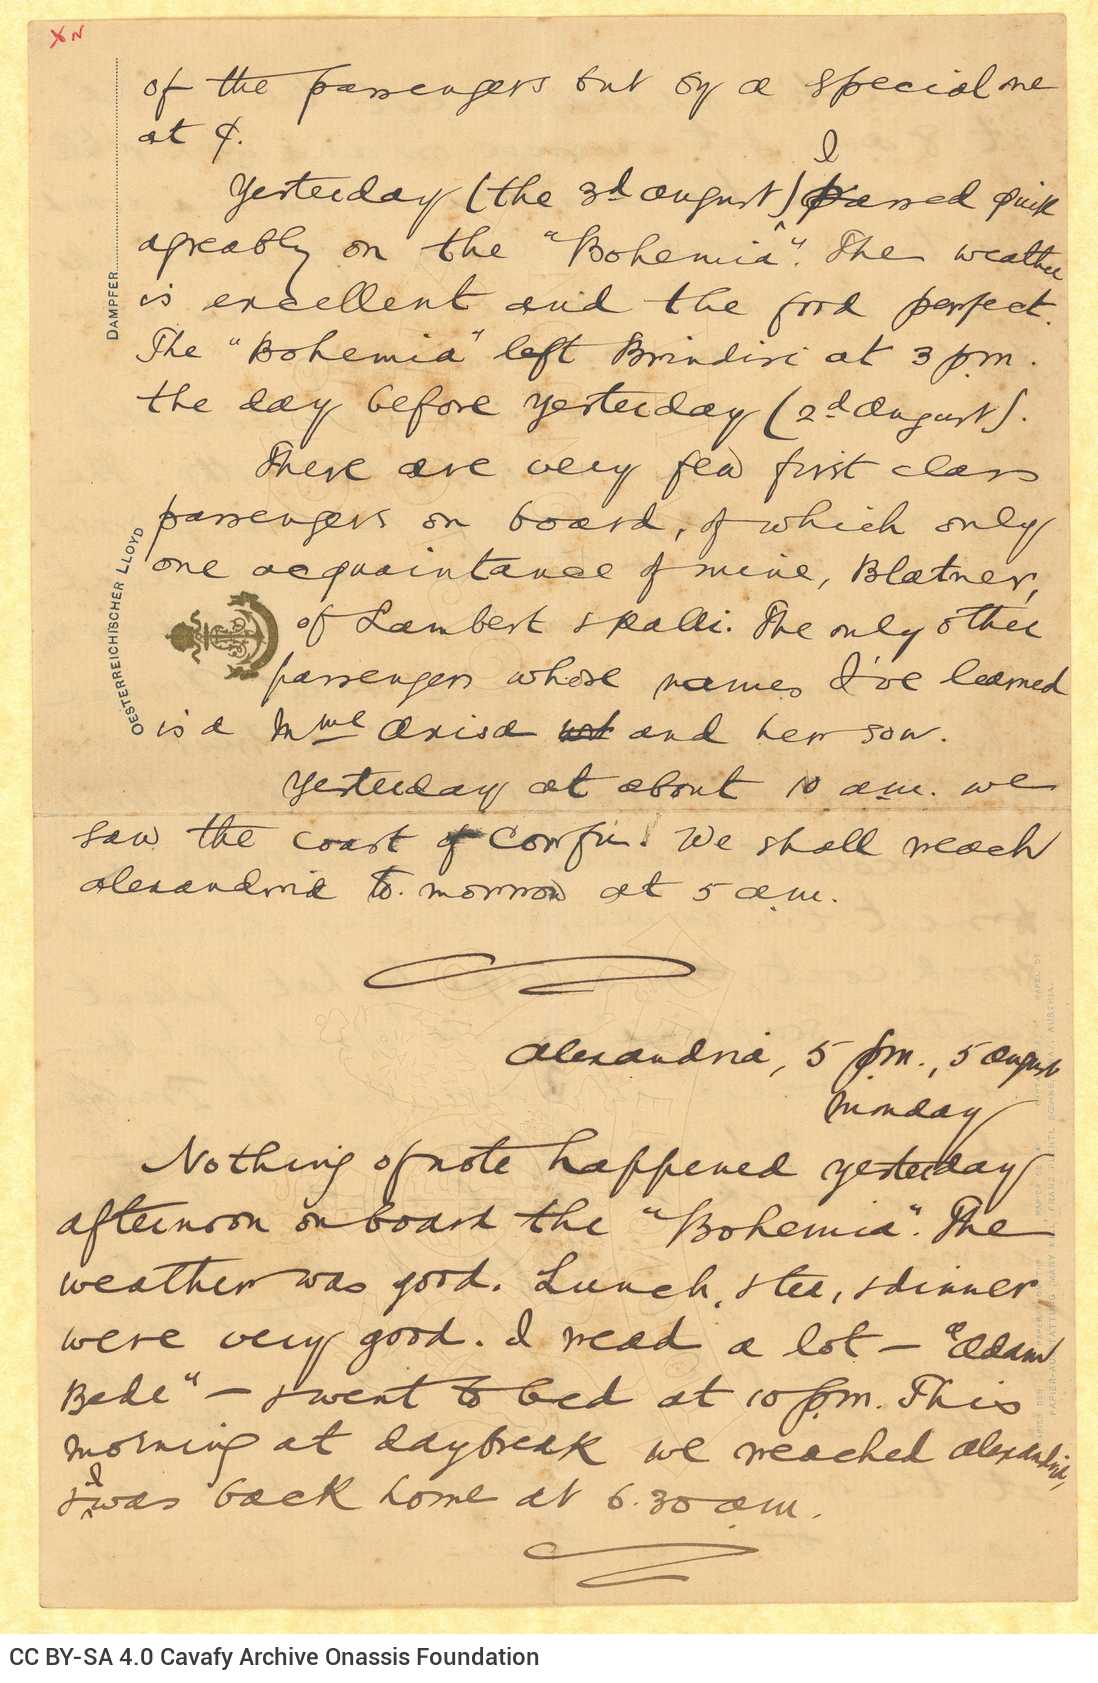 XN
of the passengers but by a special one
at 4.
Yesterday (the 3d August) I passed quite
agreably on the "Bohemia". The weather
is excellent and the food perfect.
The "Bohemia" left Brindisi at 3 p.m.
the day before yesterday (2d August).
There are very few first class
passengers on board, of which only
one acquaintance of mine, Blatner,
of Lambert & Ralli. The only other
passengers whose names I've learned
is a Mme Anisa and her son.
Yesterday at about 10 a.m. we
saw the coast of Corfu. We shall reach
Alexandria to-morrow at 5 a.m.
Alexandria, 5 p.m., 5 August
Monday
Nothing of note happened yesterday
afternoon on board the "Bohemia". The
weather was good. Lunch, & tea, & dinner
were very good. I read a lot — "Adam
Bede" — & went to bed at 10 p.m. This
morning at daybreak we reached Alexandria,
& I was back home at 6.30 a.m.
DAMPFER
OESTERREICHISCHER LLOYD
CC BY-SA 4.0 Cavafy Archive Onassis Foundation